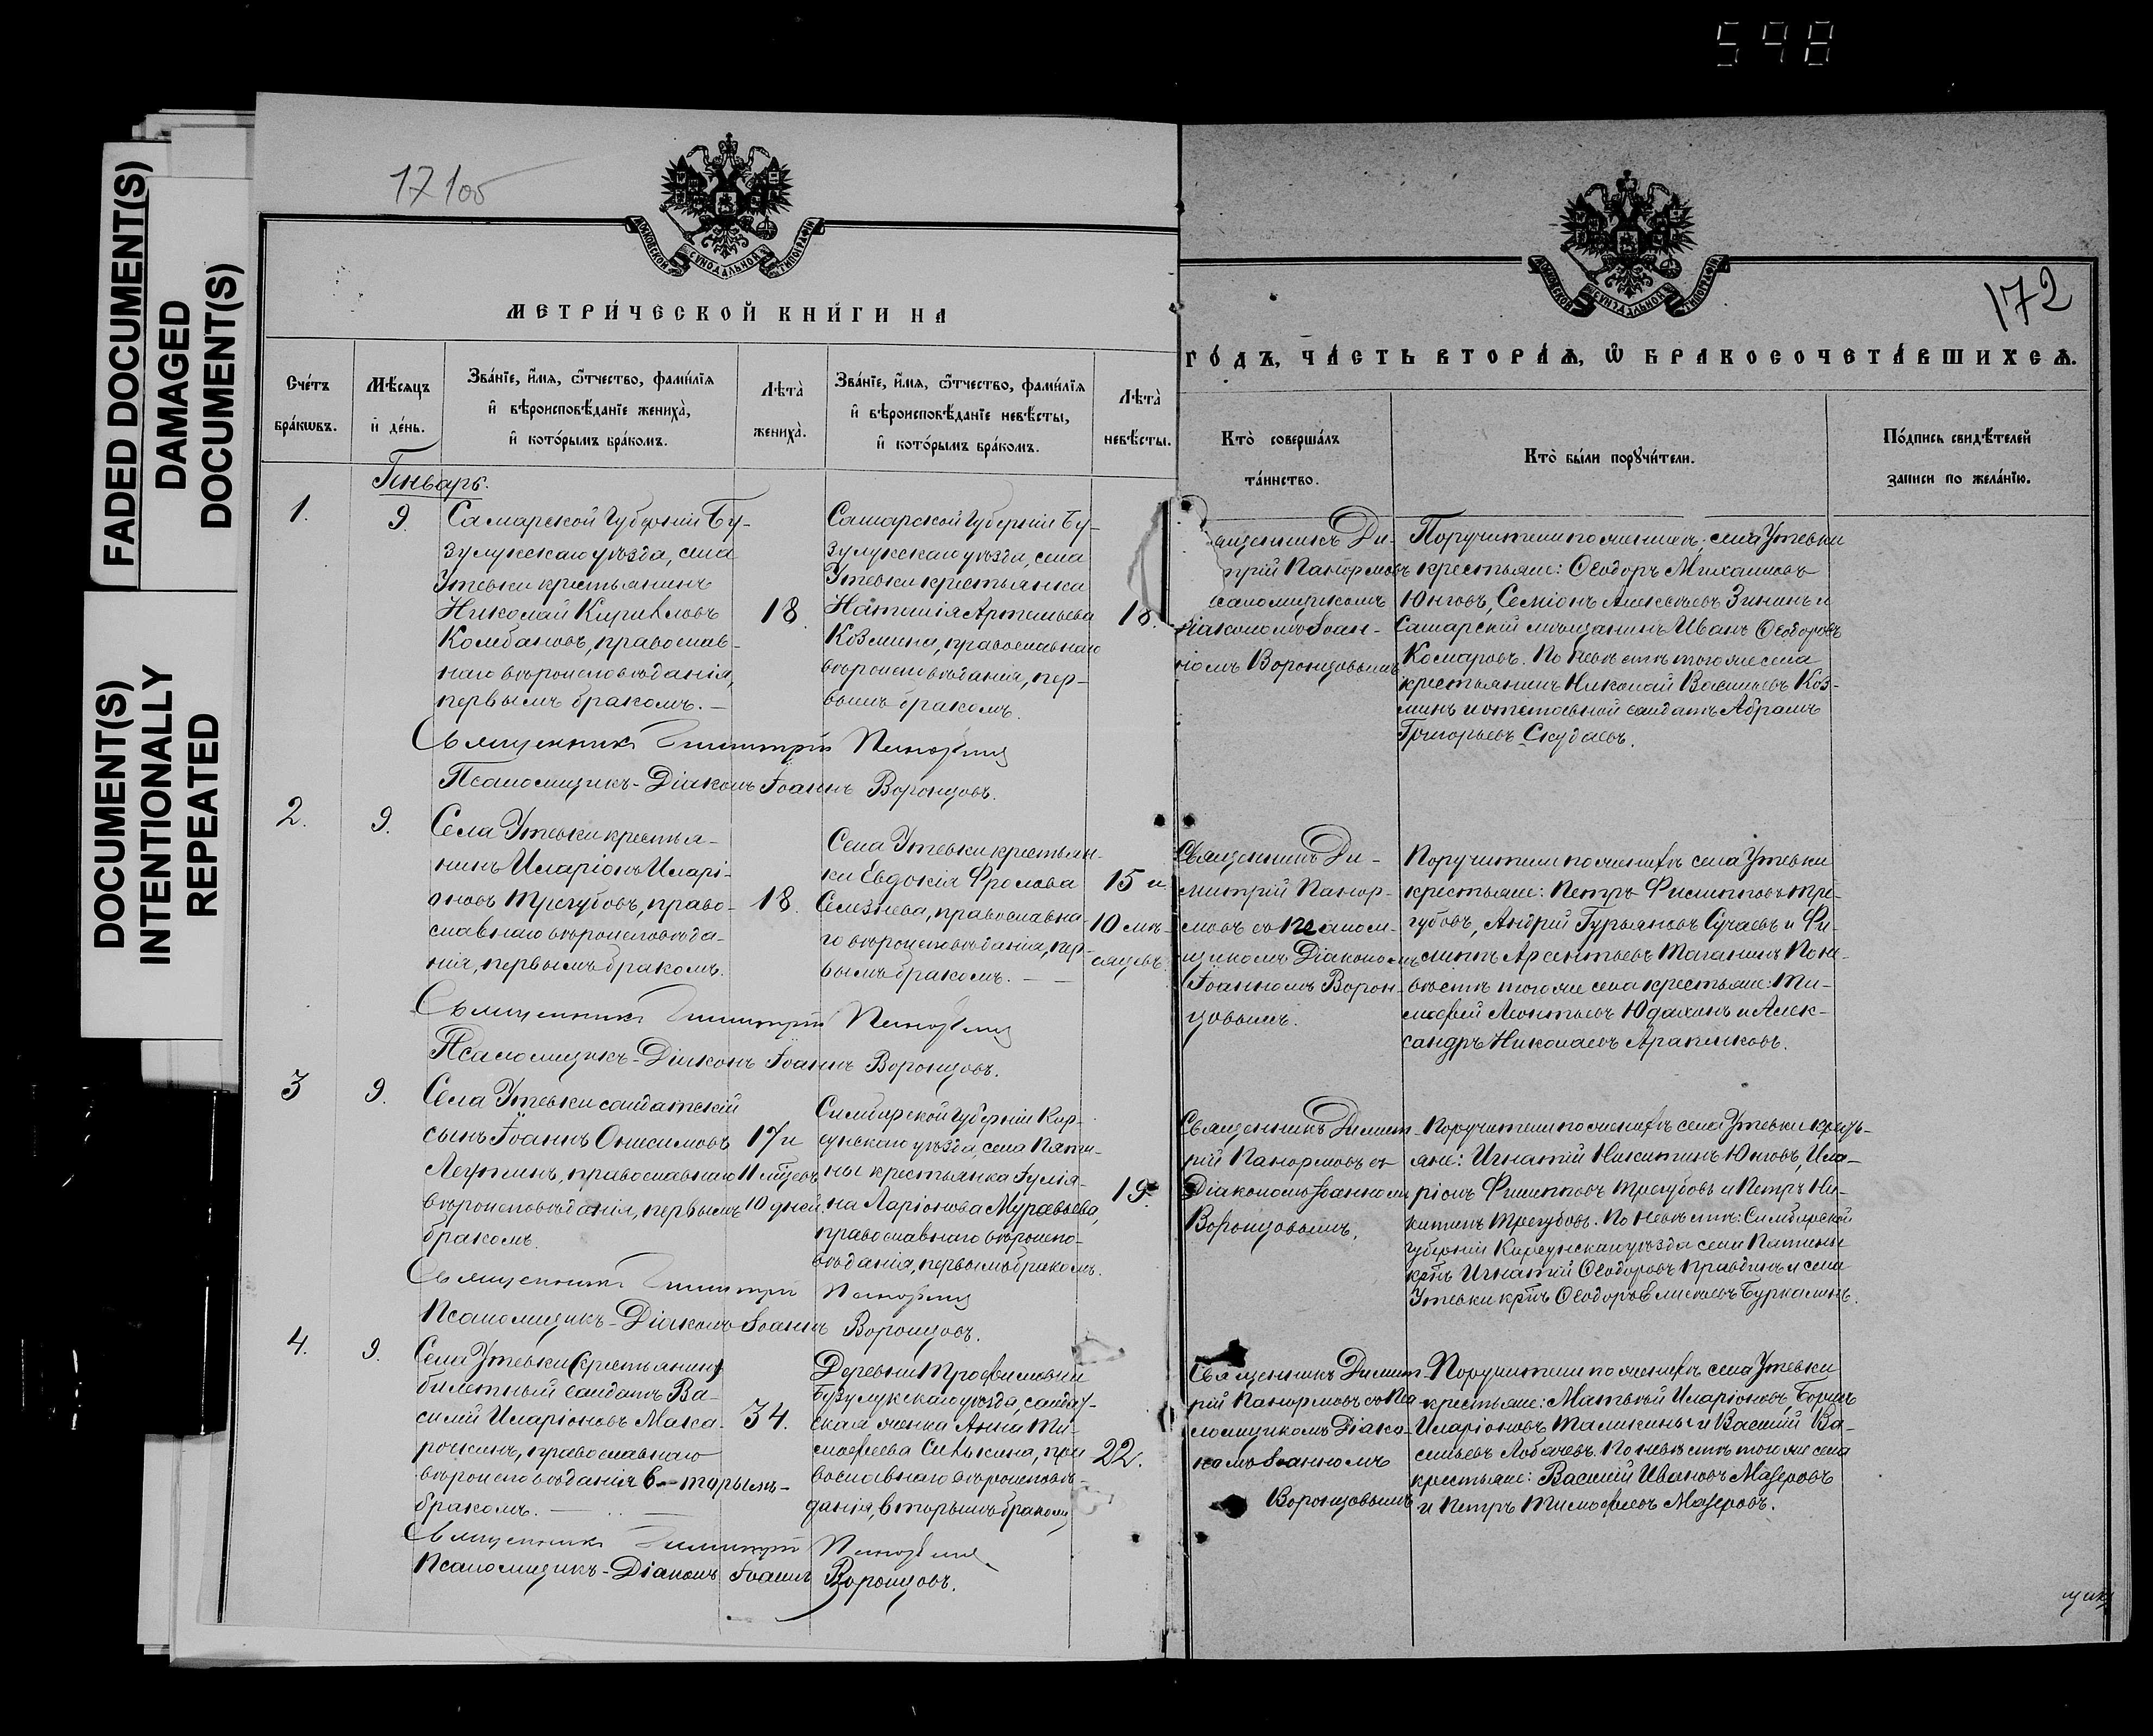 598
FADED DOCUMENT(S)
DAMAGED
DOCUMENT(S)
DOCUMENT(S)
INTENTIONALLY
REPEATED
17 100
МОСКОВСКОЙ СУНОДАЛЬНОЙ ТИПОГРАФІИ
МЕТРИ́ЧЕСКОЙ КНИ́ГИ НА
Сче́тъ
бра́кωвъ.
Мѣ́сяцъ
и҆ де́нь.
Зва́нїе, и҆́мя, ѻ҆́тчество, фами́лїя
и҆ вѣроисповѣ́данїе жениха̀,
и҆ кото́рымъ бра́комъ.
Лѣта̀
жениха̀.
Зва́нїе, и҆́мя, ѻ҆́тчество, фами́лїя
и҆ вѣроисповѣ́данїе невѣ́сты,
и҆ кото́рымъ бра́комъ.
Лѣта̀
невѣ́сты.
Генварь.
1.
9.
Самарской Губерніи Бу-
зулукскаго уѣзда, села
Утевки крестьянинъ
Николай Кирилловъ
Колбановъ, православ-
наго вѣроисповѣданія,
первымъ бракомъ. —
18.
Самарской Губерніи Бу-
зулукскаго уѣзда, села
Утевки крестьянка
Наталія Артемьева
Козмина, православнаго
вѣроисповѣданія, пер-
вымъ бракомъ.
18.
Священникъ Димитрій Панормовъ
Псаломщикъ-Діаконъ Іоаннъ Воронцовъ.
2.
9.
Села Утевки крестья-
нинъ Иларіонъ Иларі-
оновъ Трегубовъ, право-
славнаго вѣроисповѣда-
нія, первымъ бракомъ.
18.
Села Утевки крестьян-
ки Евдокія Фролова
Селезнева, православна-
го вѣроисповѣданія, пер-
вымъ бракомъ. —
15 и
10 мѣ-
сяцевъ
Священникъ Димитрій Панормовъ
Псаломщикъ-Діаконъ Іоаннъ Воронцовъ.
3
9.
Села Утевки солдатскій
сынъ Іоаннъ Онисимовъ
православнаго
вѣроисповѣданія, первымъ
бракомъ.
17 и
11 мѣсцевъ
10 дней.
Симбирской Губерніи Кар-
сунскаго уѣзда, села
крестьянка Іулія-
на Ларіонова Муравьева,
православнаго вѣроиспо-
вѣданія, первымъ бракомъ.
19.
Священникъ Димитрій Панормовъ
Псаломщикъ-Діаконъ Іоаннъ Воронцовъ.
4.
9.
Села Утевки (крестьянинъ)
билетный солдатъ Ва-
силій Иларіоновъ Мака-
рочкинъ, православнаго
вѣроисповѣданія в-торымъ-
бракомъ. —
34.
Деревни Трофимовки
Бузулукскаго уѣзда, солдат-
ская женка Анна Ти-
мофеева Силькина, пра
вославнаго вѣроисповѣ-
данія, вторымъ бракомъ,
22.
Священникъ Димитрій Панормовъ
Псаломщикъ-Діаконъ Іоаннъ Воронцовъ.
МОСКОВСКОЙ СУНОДАЛЬНОЙ ТИПОГРАФІИ
172
ГО́ДЪ, ЧА́СТЬ ВТОРА́Я, Ѡ҆ БРАКОСОЧЕТА́ВШИХСЯ.
Кто̀ соверша́лъ
та́инство.
Кто̀ бы́ли порꙋчи́тели.
По́дпись свидѣ́телей
за́писи по жела́нїю.
ященникъ Ди-
трій Панормовъ
саломщикомъ
Діакономъ Іоан-
номъ Воронцовымъ
Поручители по женихѣ: села Утевки
крестьяне: Ѳеодоръ Михаиловъ
Юнговъ, Семіонъ Алексѣевъ Зининъ и
Самарскій мѣщанинъ Иванъ Ѳеодоровъ
Комаровъ. По невѣстѣ того же села
крестьянинъ Николай Васильевъ Коз-
минъ и отставной солдатъ Абрамъ
Григорьевъ Скудаевъ.
Священникъ Ди-
митрій Панор-
мовъ съ Псалом-
щикомъ Діакономъ
Іоанномъ Ворон-
цовымъ.
Поручители по женихѣ села Утевки
крестьяне: Петръ Филипповъ Тре-
губовъ, Андрей Гурьяновъ Сучаевъ и Фи-
липпъ Арсентьевъ Таганинъ По не-
вѣстѣ того же села крестьяне: Ти-
мофей Леонтьевъ Юдахинъ и Алек-
сандръ Николаевъ Арапниковъ.
Священникъ Димит-
рій Панормовъ съ
Діакономъ Іоанномъ
Воронцовымъ.
Поручители по женихѣ села Утевки кресть-
яне: Игнатій Никитинъ Юнговъ, Ила-
ріонъ Филипповъ Трегубовъ и Петръ Ни-
китинъ Трегубовъ. По невѣстѣ: Симбирской
губерніи Карсунскаго уѣзда села
крнъ Игнатій Ѳеодоровъ Правдинъ и села
Утевки крнъ Ѳеодоръ Буркалинъ.
Священникъ Димит-
рій Панормовъ съ Пса
ломщикомъ Діако-
номъ Іоанномъ
Воронцовымъ
Поручители по женихѣ села Утевки
крестьяне: Матвѣй Иларіоновъ, Борисъ
Иларіоновъ Таликины и Василій Ва-
сильевъ Лобачевъ. По невѣстѣ того же села
крестьяне: Василій Ивановъ Мазеровъ
и Петръ Тимофеевъ Мазеровъ.